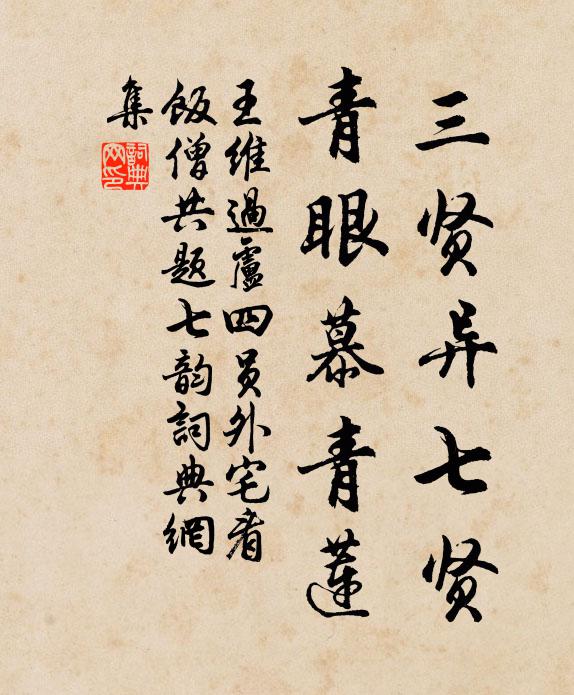 三贤异七贤
青眼慕青莲
王维過盧四员外宅看
飯僧共题七韵詞典網
集
詞典网印